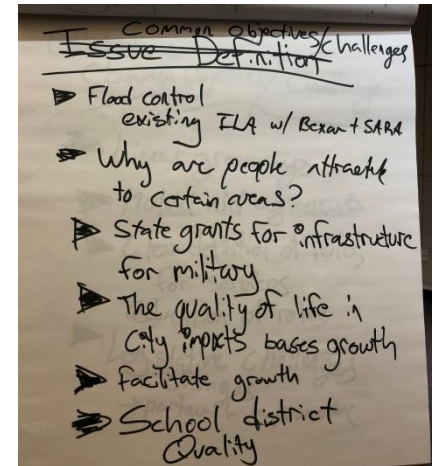 Common objectives/challenges
Issue Definition
Flood control
existing ILA w/ Bexar + SARA
Why are people
to certain areas?
State grants for infrastructure
for military
The quality of life in
City impacts bases growth
Facilitate growth
School district
Quality